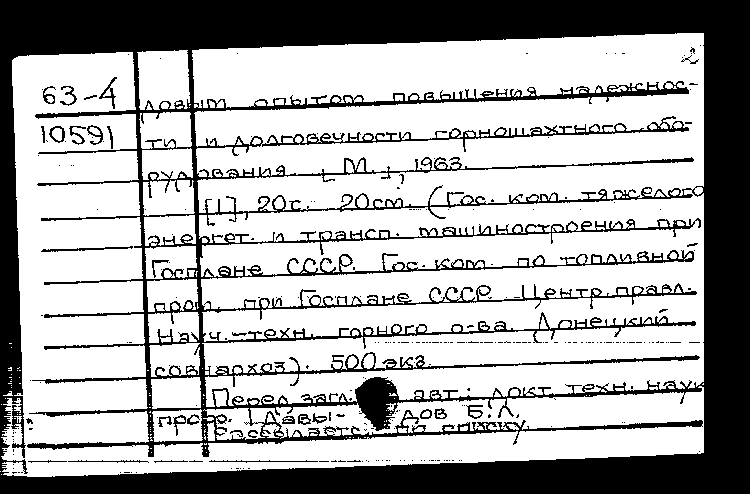 2
63-4 довым опытом повышения надежнос-
10591 ти и долговечности горношахтного обо-
рудования. [М.], 1963.
[1], 20с. 20см. (Гос. ком. тяжелого
энергет. и трансп. машиностроения при
Госплане СССР. Гос. ком. по топливной
пром. при Госплане СССР. Центр. правл.
Науч.-техн. горного о-ва. Донецкий
совнархоз). 500 экз.
Перед загл. авт.: докт. техн. наук
проф. Давы- дов Б.Л.
Рассылается по списку.